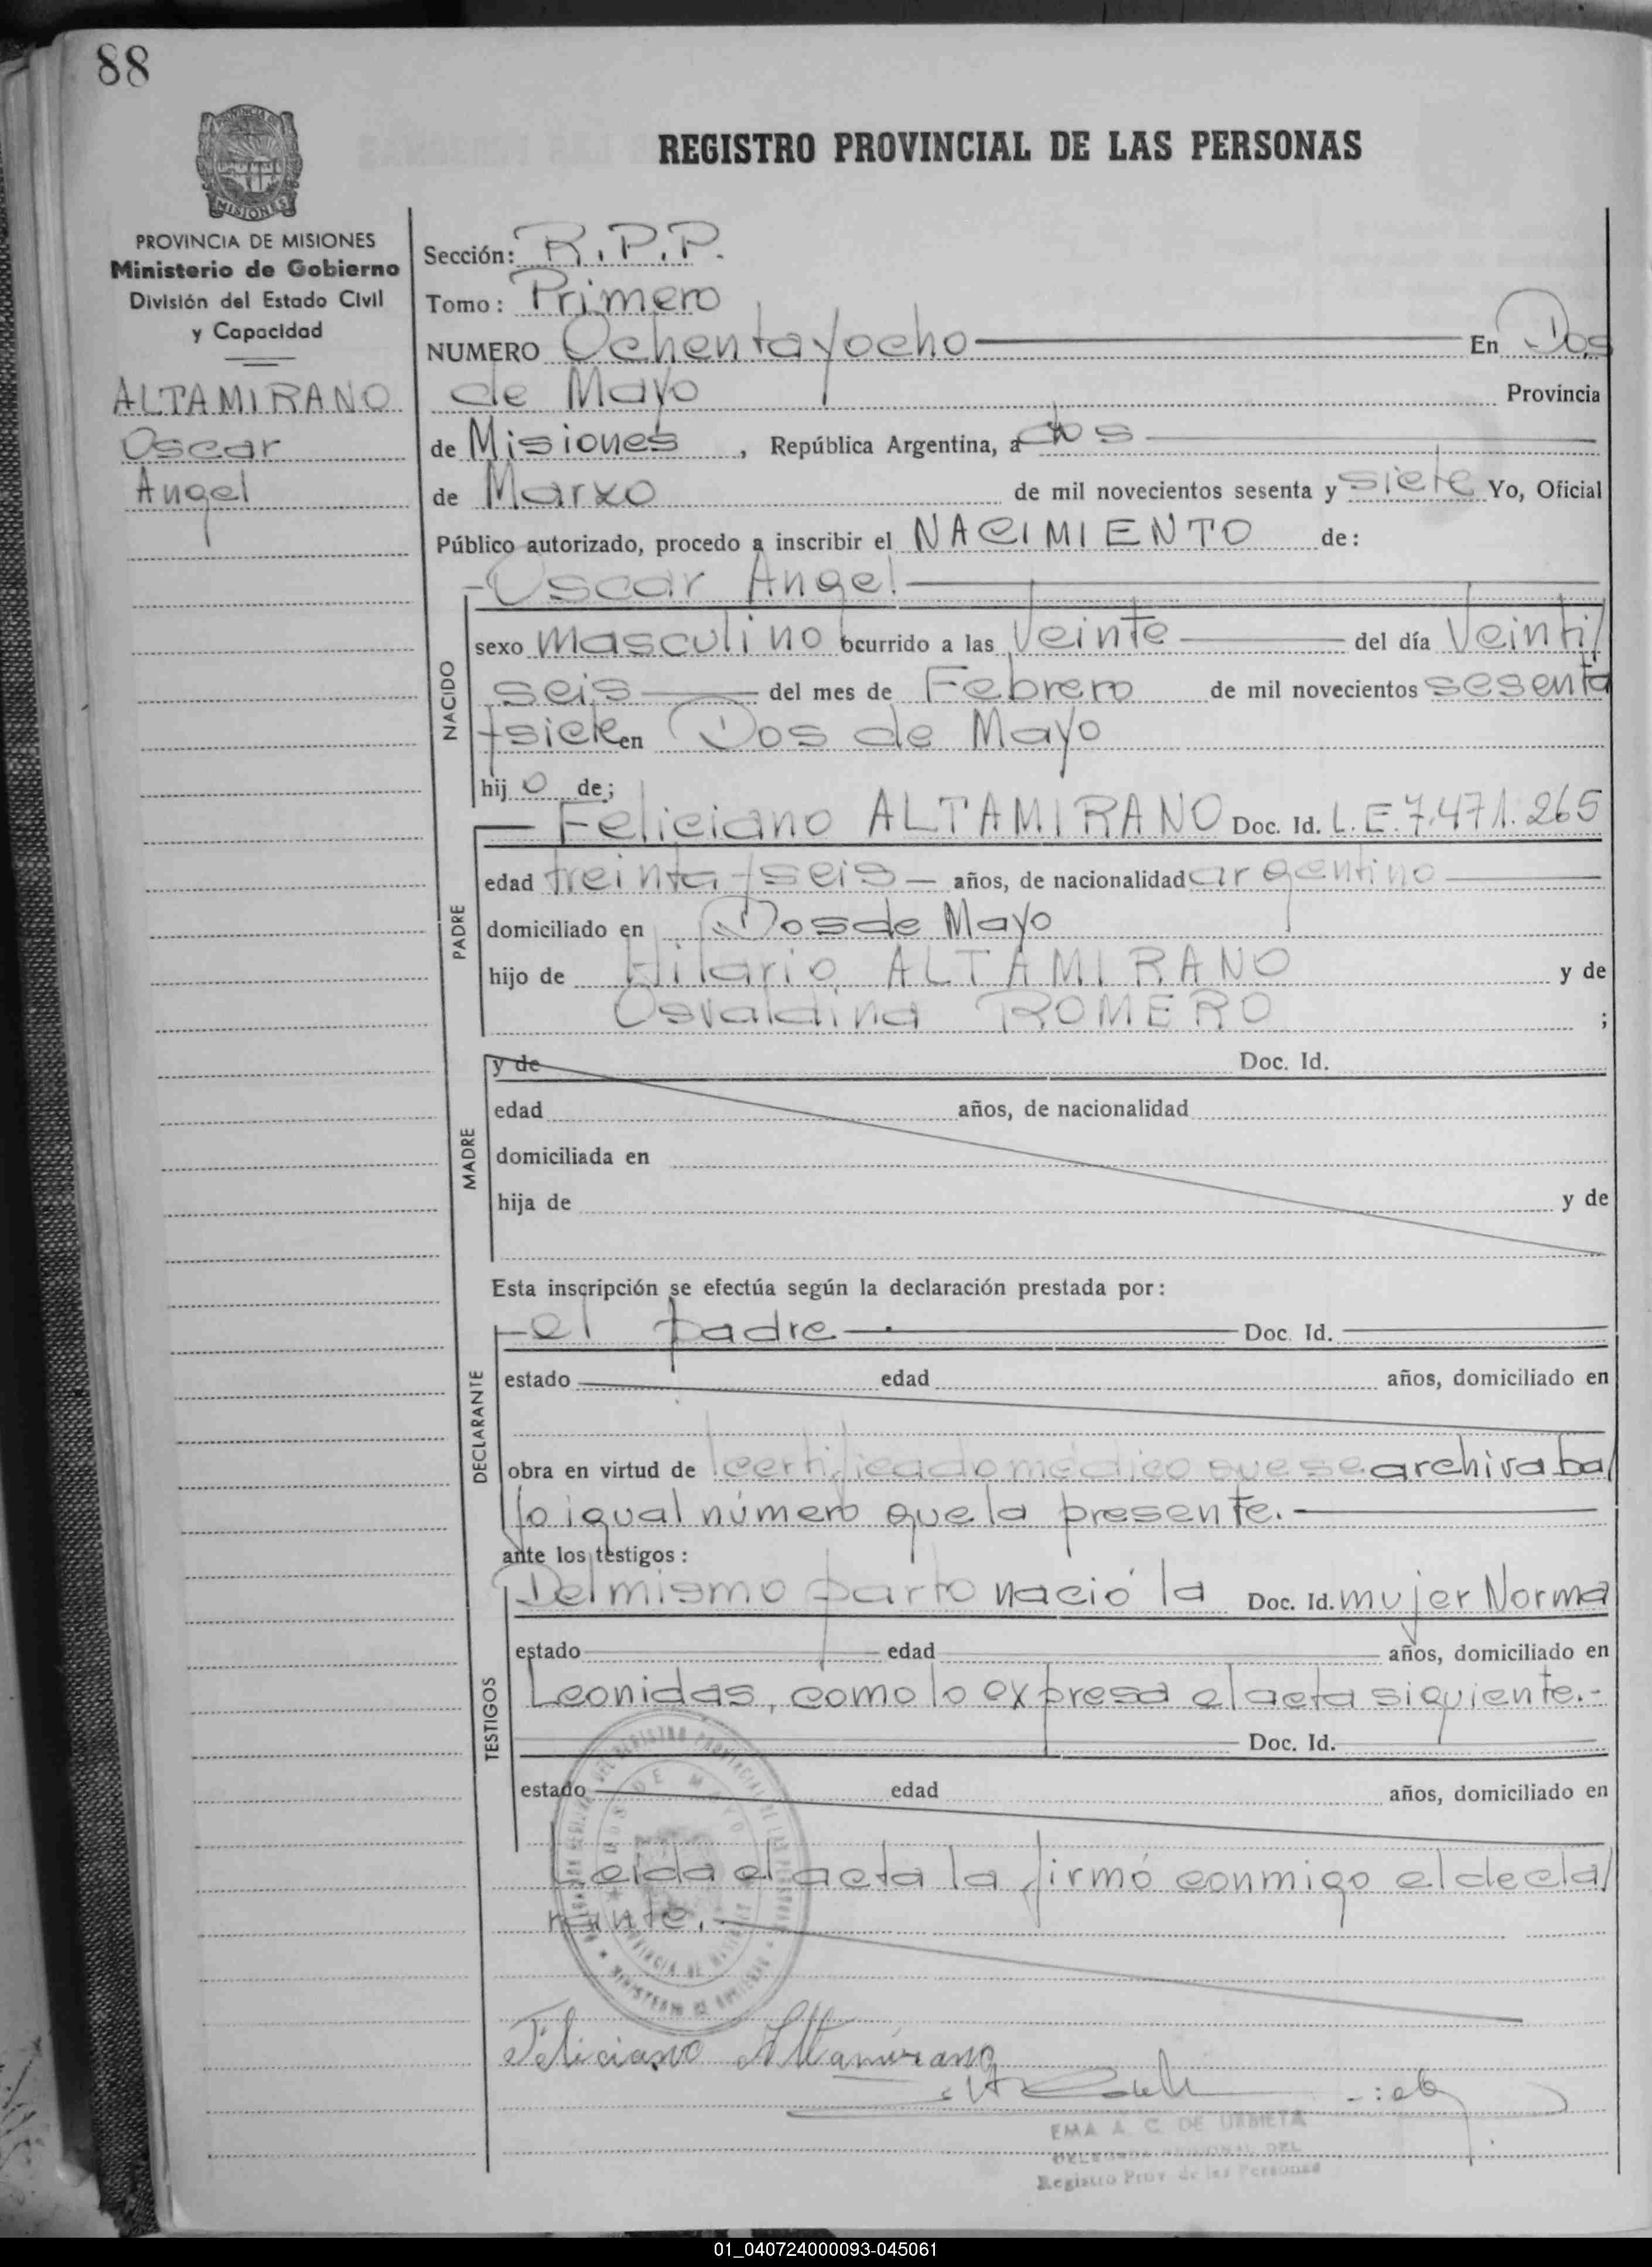 88
REGISTRO PROVINCIAL DE LAS PERSONAS
PROVINCIA DE MISIONES
Ministerio de Gobierno
División del Estado Civil
y Capacidad
ALTAMIRANO
Oscar
Angel
Sección: R.P.P.
Tomo: Primero
NUMERO Ochentayocho En Dos
de Mayo Provincia
de Misiones, República Argentina, a dos
de Marzo de mil novecientos sesenta y siete Yo, Oficial
Público autorizado, procedo a inscribir el NACIMIENTO de:
Oscar Angel
NACIDO
sexo masculino ocurrido a las Veinte del día Veinti/
seis del mes de Febrero de mil novecientos sesenta
ysiete en Dos de Mayo
hijo de;
PADRE
Feliciano ALTAMIRANO Doc. Id. L.E.7.471.265
edad treinta y seis años, de nacionalidad argentino
domiciliado en Dos de Mayo
hijo de Hilario ALTAMIRANO y de
Osvaldina ROMERO ;
MADRE
y de Doc. Id.
edad años, de nacionalidad
domiciliada en
hija de y de
Esta inscripción se efectúa según la declaración prestada por:
DECLARANTE
el padre Doc. Id.
estado edad años, domiciliado en
obra en virtud de certificado médico que se archiva ba/
jo igual número que la presente.
ante los testigos:
TESTIGOS
Del mismo parto nació la Doc. Id. mujer Norma
estado edad años, domiciliado en
Leonidas, como lo expresa el acta siguiente.-
Doc. Id.
estado edad años, domiciliado en
Leida el acta la firmó conmigo el decla/
rante.
Feliciano Altamirano
EMA A. C. DE URBIETA
Registro Prov. de las Personas
01_040724000093-045061